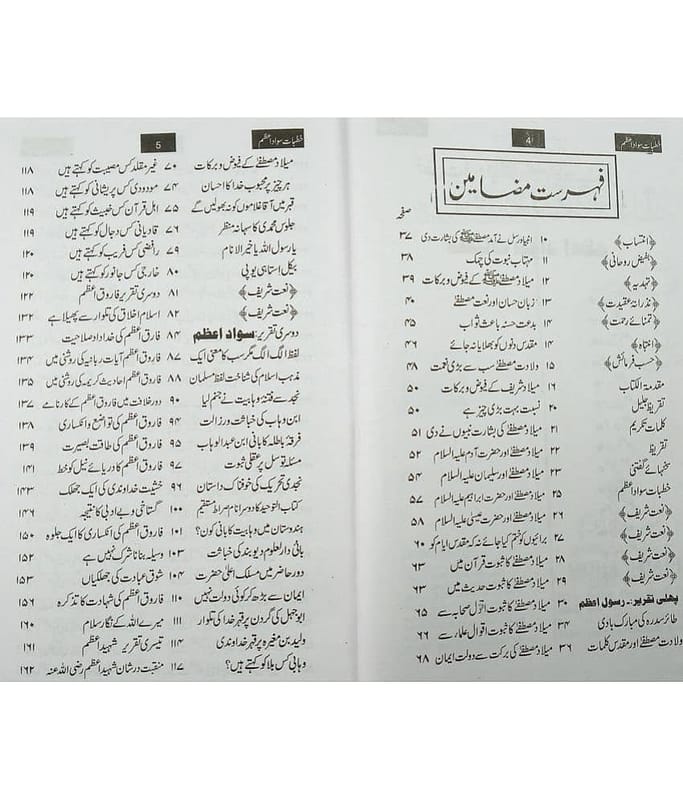 خطبات سواد اعظم
4
فہرست مضامین
صفحہ
﴿انتساب﴾ ۱۰
﴿بفیض روحانی﴾ ۱۱
﴿تہدیہ﴾ ۱۲
﴿نذرانۂ عقیدت﴾ ۱۳
﴿تمنائے رحمت﴾ ۱۴
﴿انتباہ﴾ ۱۴
﴿حسب فرمائش﴾ ۱۵
مقدمۃ الکتاب ۱۶
تقریظ جلیل ۲۰
کلمات تکریم ۲۱
تقریظ ۲۲
سخنہائے گفتنی ۲۳
خطبات سواد اعظم ۲۵
﴿نعت شریف﴾ ۲۶
﴿نعت شریف﴾ ۲۷
﴿نعت شریف﴾ ۲۸
﴿نعت شریف﴾ ۲۹
پہلی تقریر:۔ رسول اعظم ۳۰
طائر سدرہ کی مبارک بادی ۳۴
ولادت مصطفےٰ اور مقدس کلمات ۳۶
انبیاء و رسل نے آمد مصطفےٰ ﷺ کی بشارت دی ۳۷
مہتاب نبوت کی چمک ۳۸
میلاد مصطفےٰ ﷺ کے فیوض و برکات ۳۹
زبان حسان اور نعت مصطفےٰ ۴۰
بدعت حسنہ باعث ثواب ۴۵
مقدس دنوں کو بھلایا نہ جائے ۴۶
ولادت مصطفےٰ سب سے بڑی نعمت ۴۸
میلاد شریف کے فیوض و برکات ۵۰
نسبت بہت بڑی چیز ہے ۵۰
میلاد مصطفےٰ کی بشارت نبیوں نے دی ۵۱
میلاد مصطفےٰ اور حضرت آدم علیہ السلام ۵۲
میلاد مصطفےٰ اور سلیمان علیہ السلام ۵۴
میلاد مصطفےٰ اور حضرت ابراہیم علیہ السلام ۵۷
میلاد مصطفےٰ اور حضرت عیسیٰ علیہ السلام ۵۸
برائیوں کو ختم کیا جائے نہ کہ مقدس ایام کو ۶۰
میلاد مصطفےٰ کا ثبوت قرآن میں ۶۳
میلاد مصطفےٰ کا ثبوت حدیث میں ۶۳
میلاد مصطفےٰ کا ثبوت اقوال صحابہ سے ۶۵
میلاد مصطفےٰ کا ثبوت اقوال علماء سے ۶۶
میلاد مصطفےٰ کی برکت سے دولت ایمان ۶۸
خطبات سواد اعظم
5
میلاد مصطفےٰ کے فیوض و برکات ۷۰
ہر چیز پر محبوب خدا کا احسان ۷۴
قبر میں آقا غلاموں کو نہ بھولیں گے ۷۵
جلوس محمدی کا سہانہ منظر ۷۶
یا رسول اللہ یا خیر الانام ۷۹
بیکل اتساہی یوپی ۸۰
﴿نعت شریف﴾ ۸۱
﴿نعت شریف﴾ ۸۲
دوسری تقریر: سواد اعظم ۸۴
لفظ الگ الگ مگر سب کا معنی ایک ۸۷
مذہب اسلام کی شناخت لفظ مسلمان ۸۸
نجد سے فتنۂ وہابیت نے جنم لیا ۹۰
ابن وہاب کی خباثت و رزالت ۹۴
فرقۂ باطلہ کا بانی ابن عبد الوہاب ۹۵
مسئلہ توسل پر عقلی ثبوت ۹۷
نجدی تحریک کی خوفناک داستان ۹۶
کتاب التوحید کا دوسرا نام صراط مستقیم ۱۰۰
ہندوستان میں وہابیت کا بانی کون؟ ۱۰۱
بانی دار العلوم دیوبند کی خباثت ۱۰۳
دور حاضر میں مسلک اعلیٰ حضرت ۱۰۴
ایمان سے بڑھ کر کوئی دولت نہیں ۱۱۰
ابو جہل کی گردن پر قہر خدا کی تلوار ۱۱۱
ولید بن مغیرہ پر قہر خداوندی ۱۱۴
وہابی کس بلا کو کہتے ہیں؟ ۱۱۷
غیر مقلد کس مصیبت کو کہتے ہیں ۱۱۸
مودودی کس پریشانی کو کہتے ہیں ۱۱۸
اہل قرآن کس خبیث کو کہتے ہیں ۱۱۹
قادیانی کس دجال کو کہتے ہیں ۱۱۹
رافضی کس فریب کو کہتے ہیں ۱۲۰
خارجی کس جانور کو کہتے ہیں ۱۲۰
دوسری تقریر فاروق اعظم ۱۲۲
اسلام اخلاق کی تلوار سے پھیلا ہے ۱۳۲
فارق اعظم کی خداداد صلاحیت ۱۳۳
فاروق اعظم آیات ربانیہ کی روشنی میں ۱۳۴
فاروق اعظم احادیث کریمہ کی روشنی میں ۱۳۵
دور خلافت میں فاروق اعظم کے کارنامے ۱۳۷
فاروق اعظم کی تواضع و انکساری ۱۳۸
فاروق اعظم کی طاقت بصیرت ۱۳۹
فاروق اعظم کا دریائے نیل کو خط ۱۴۱
خشیت خداوندی کی ایک جھلک ۱۴۳
گستاخی و بے ادبی کا نتیجہ ۱۴۶
فاروق اعظم کی انکساری کا ایک جلوہ ۱۵۰
وسیلہ بنانا شرک نہیں ہے ۱۵۲
شوق عبادت کی جھلکیاں ۱۵۳
فاروق اعظم کی شہادت کا تذکرہ ۱۵۶
میرے اللہ کے نگار سلام ۱۶۰
تیسری تقریر شہید اعظم ۱۶۱
منقبت در شان شہید اعظم رضی اللہ عنہ ۱۶۲